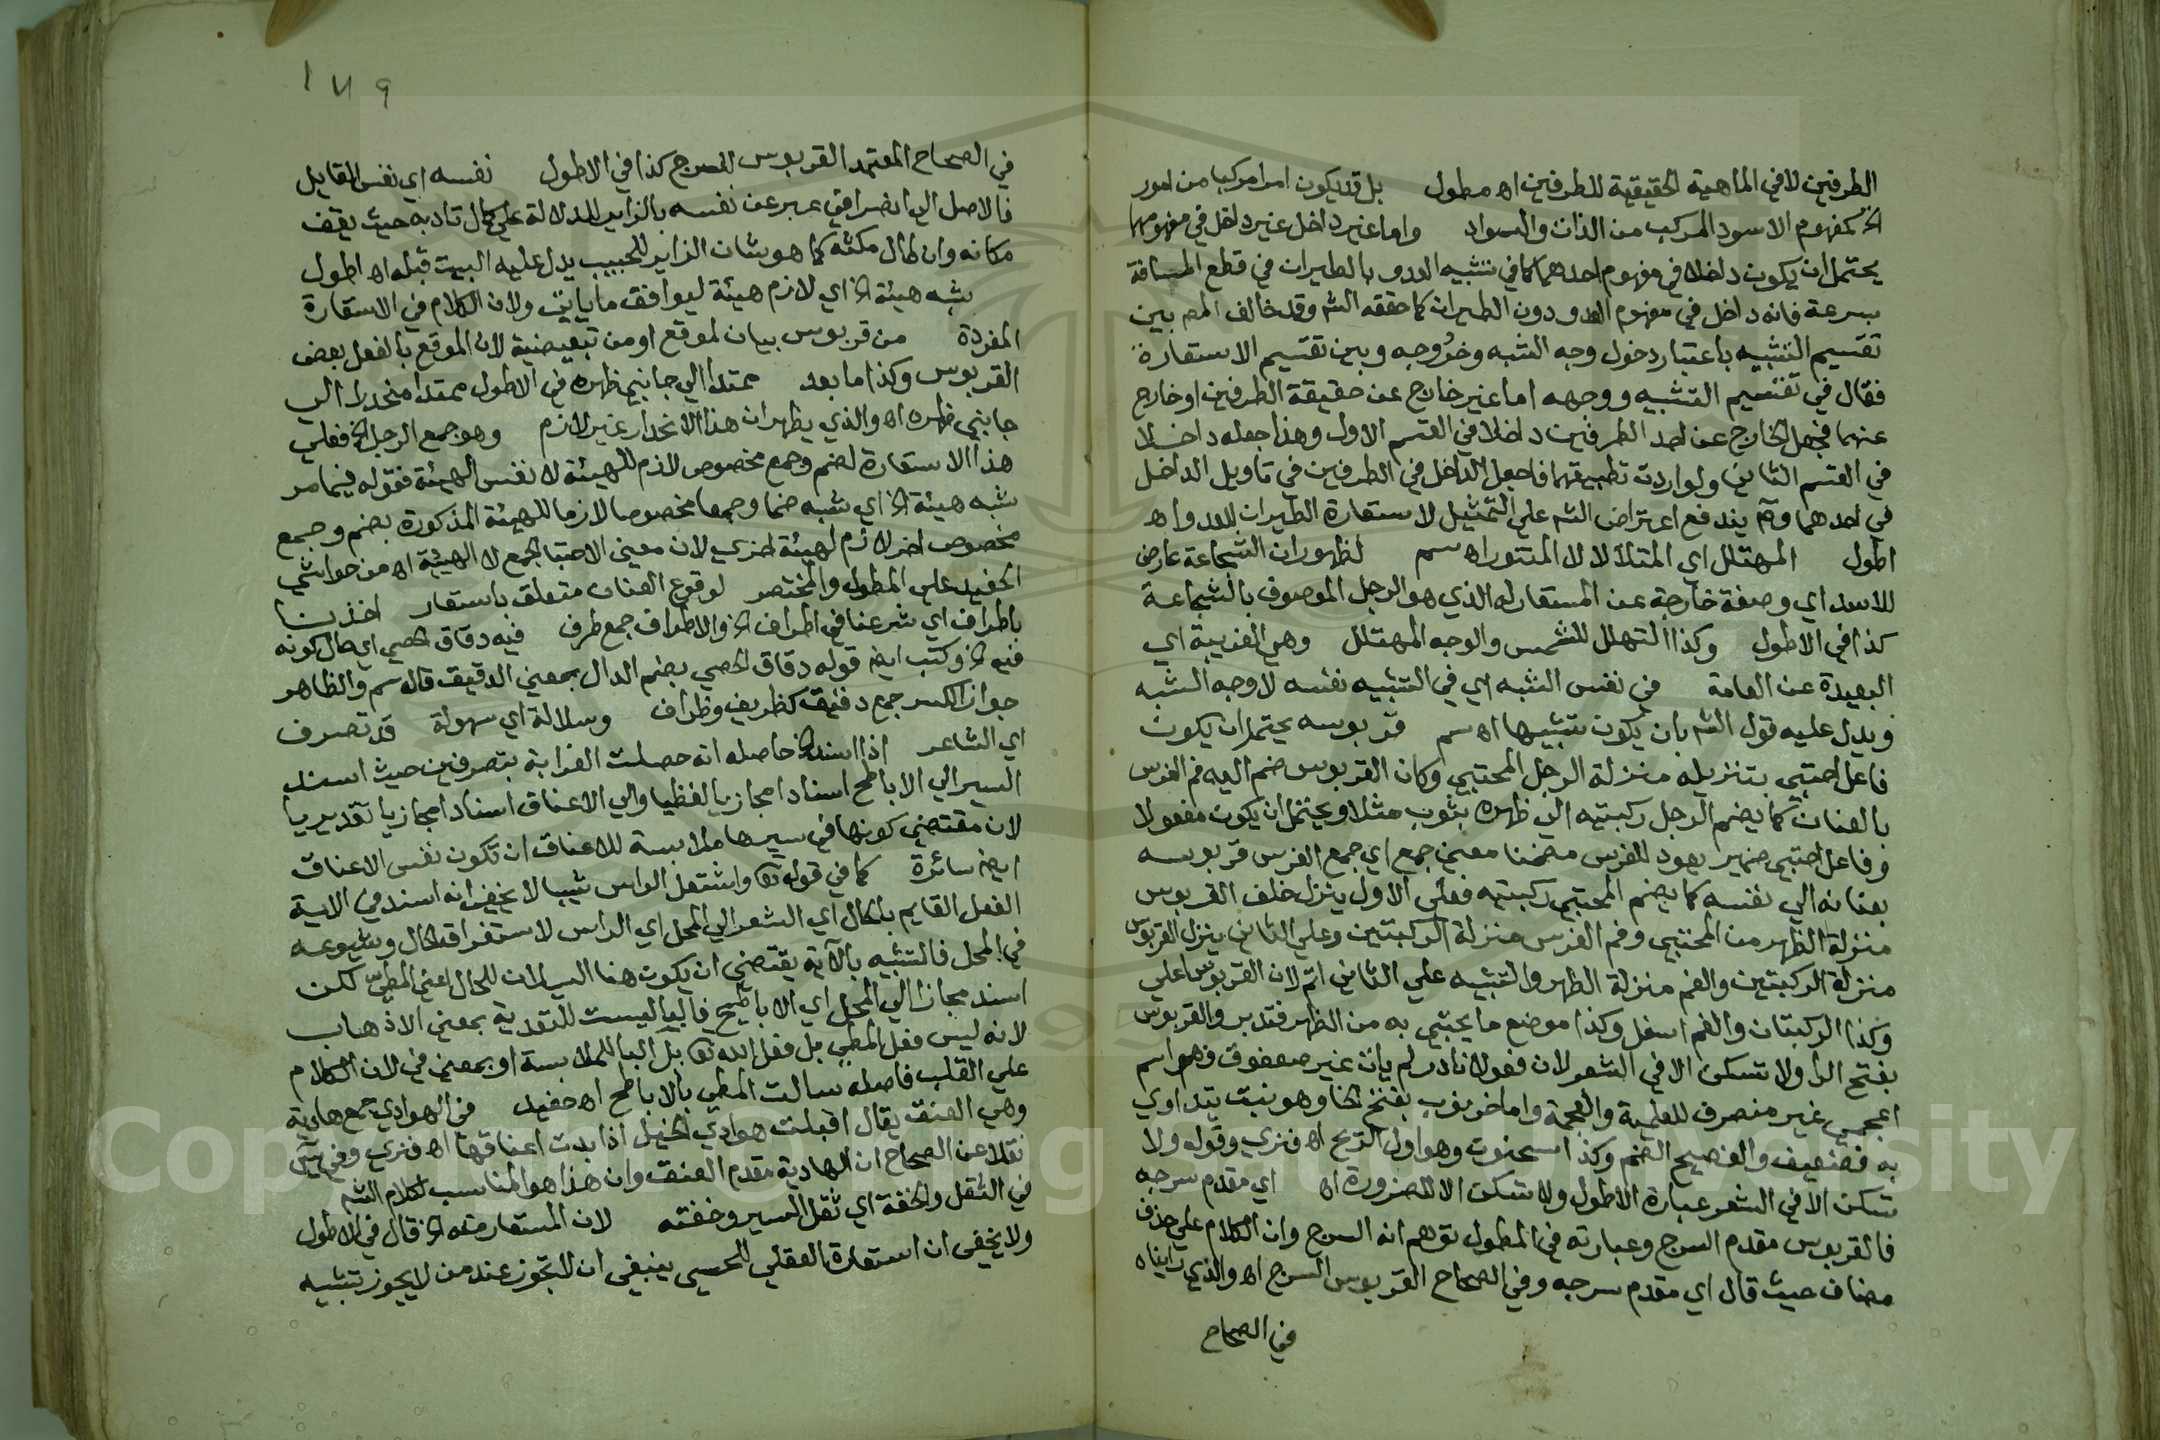 الطرفين لا في الماهية الحقيقية للطرفين اه مطول بل قد يكون امرا مركبا من امور
الخ كمفهوم الاسود المركب من الذات والسواد واما غير داخل غير داخل في مفهومهما
يحتمل ان يكون داخلا في مفهوم احدهما كما في تشبيه العدو بالطيران في قطع المسافة
بسرعة فانه داخل في مفهوم العدو دون الطيران كما حققه الشم وقد خالف المص بين
تقسيم التشبيه باعتبار دخول وجه الشبه وخروجه وبين تقسيم الاستعارة
فقال في تقسيم التشبيه ووجهه اما غير خارج عن حقيقة الطرفين او خارج
عنهما فجعل الخارج عن احد الطرفين داخلا في القسم الاول وهذا جعله داخلا
في القسم الثاني ولو اردت تطبيقهما فاجعل الداخل في الطرفين في تاويل الداخل
في احدهما وح يندفع اعتراض الشم علي التمثيل لاستعارة الطيران للعدو اه
اطول المتهلل اي المتلألا لا المتنور اه سم لظهور ان الشجاعة عارض
للاسد اي وصفة خارجة عن المستعار له الذي هو الرجل الموصوف بالشجاعة
كذا في الاطول وكذا التهلل للشمس والوجه المهتلل وهي الغريبة اي
البعيدة عن العامة في نفس الشبه اي في التشبيه نفسه لا وجه الشبه
ويدل عليه قول الشم بان يكون تشبيها اه سم قربوسه يحتمل ان يكون
فاعل احتبي بتنزيله منزلة الرجل المحتبي وكان القربوس ضم اليه فم الفرس
بالعنان كما يضم الرجل ركبتيه الي ظهره بثوب مثلا ويحتمل ان يكون مفعولا
وفاعل احتبي ضمير يعود للفرس مضمنا معني جمع اي جمع الفرس قربوسه
بعنانه الي نفسه كما يضم المحتبي ركبتيه فعلي الاول ينزل خلف القربوس
منزلة الظهر من المحتبي وفم الفرس منزلة الركبتين وعلي الثاني ينزل القربوس
منزلة الركبتين والفم منزلة الظهر والتشبيه علي الثاني اتم لان القربوس اعلي
وكذا الركبتان والفم اسفل وكذا موضع ما يحتبي به من الظهر فتدبر والقربوس
بفتح الرا ولا تسكن الا في الشعر لان فعولا نادر لم يات غير صعفوق وهو اسم
اعجمي غير منصرف للعلمية والعجمة واما خرنوب بفتح الخا وهو نبت يتداوي
به فضعيف والفصيح الضم وكذا سحنون وهو اول الريح اه فنري وقوله ولا
تسكن الا في الشعر عبارة الاطول ولا تسكن الا للضرورة اه اي مقدم سرجه
فالقربوس مقدم السرج وعبارته في المطول توهم انه السرج وان الكلام علي حذف
مضاف حيث قال اي مقدم سرجه وفي الصحاح القربوس السرج اه والذي رايناه
في الصحاح
١٧٩
في الصحاح المعتمد القربوس للسرج كذا في الاطول نفسه اي نفس القايل
فالاصل الي انضرافي عبر عن نفسه بالزاير للدلالة علي كمال تادبه حيث يقف
مكانه وان طال مكثه كما هو شان الزاير للحبيب يدل عليه البيت قبله اه اطول
شبه هيئة الخ اي لازم هيئة ليوافق ما ياتي ولان الكلام في الاستعارة
المفردة من قربوس بيان لموقع او من تبعيضية لان الموقع بالفعل بعض
القربوس وكذا ما بعد ممتدا الي جانبي ظهره في الاطول ممتدا منحدرا الي
جانبي ظهره اه والذي يظهر ان هذا الانحدار غير لازم وهو جمع الرجل الخ فعلي
هذا الاستعارة لضم وجمع مخصوص لازم للهيئة لا نفس الهيئة فقوله فيما مر
شبه هيئة الخ اي شبه ضما وجمعا مخصوصا لازما للهيئة المذكورة بضم وجمع
مخصوص اخر لازم لهيئة اخري لان معني الاحتبا الجمع لا الهيئة اه من حواشي
الحفيد علي المطول والمختصر لوقوع العنان متعلق باستعار اخذنا
باطراف اي شرعنا في اطراف الخ والاطراف جمع طرف فيه دقاق الحصي اي حال كونه
فيه الخ وكتب ايضا قوله دقاق الحصي بضم الدال بمعني الدقيق قاله سم والظاهر
جواز الكسر جمع دقيق كظريف وظراف وسلالة اي سهولة قد تصرف
اي الشاعر اذا اسند الخ حاصله انه حصلت الغرابة بتصرفين حيث اسند
السير الي الاباطح اسنادا مجازيا لفظيا والي الاعناق اسنادا مجازيا تقديريا
لان مقتضي كونها في سيرها ملابسة للاعناق ان تكون نفس الاعناق
ايضا سائرة كما في قوله تعا واشتعل الراس شيبا لا يخفي انه اسند في الاية
الفعل القايم بالحال اي الشعر الي المحل اي الراس لاستغراقه الحال وشيوعه
في المحل فالتشبيه بالآية يقتضي ان يكون هنا السيلان للحال اعني المطي لكن
اسند مجازا الي المحل اي الاباطح فالبا ليست للتعدية بمعني الاذهاب
لانه ليس فعل المطي بل فعل الله تعا بل البا للملابسة او بمعني في لان الكلام
علي القلب فاصله سالت المطي بالاباطح اه حفيد في الهوادي جمع هادية
وهي العنق يقال اقبلت هوادي الخيل اذا بدت اعناقها اه فنري وفي
نقلا عن الصحاح ان الهادية مقدم العنق وان هذا هو المناسب لكلام الشم
في الثقل والخفة اي ثقل السير وخفته لان المستعار منه الخ قال في الاطول
ولا يخفي ان استعارة العقلي للحسي ينبغي ان لا تجوز عند من لا يجوز تشبيه